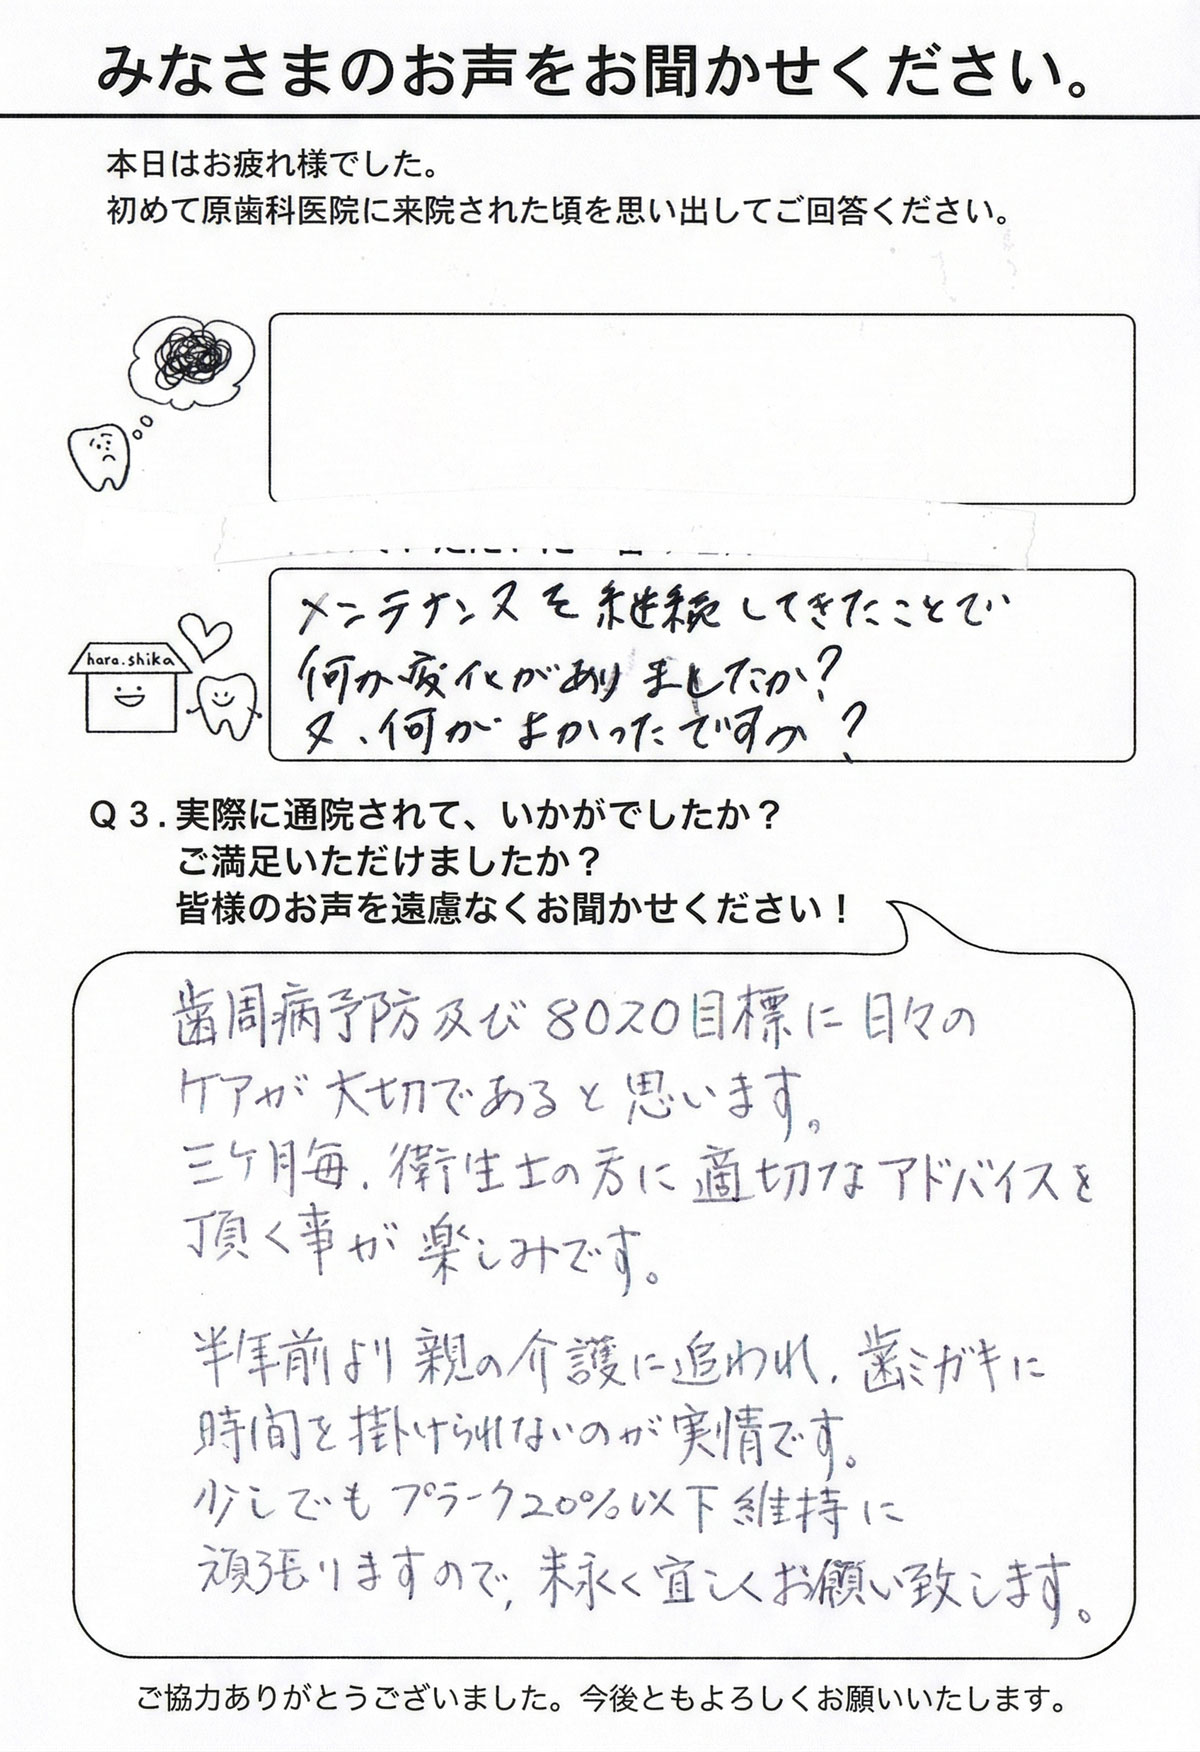 みなさまのお声をお聞かせください。
本日はお疲れ様でした。
初めて原歯科医院に来院された頃を思い出してご回答ください。
hara.shika
メンテナンスを継続してきたことで
何か変化がありましたか?
又、何がよかったですか?
Q3.実際に通院されて、いかがでしたか?
ご満足いただけましたか?
皆様のお声を遠慮なくお聞かせください!
歯周病予防及び8020目標に日々の
ケアが大切であると思います。
三ケ月毎、衛生士の方に適切なアドバイスを
頂く事が楽しみです。
半年前より親の介護に追われ、歯ミガキに
時間を掛けられないのが実情です。
少しでもプラーク20%以下維持に
頑張りますので、末永く宜しくお願い致します。
ご協力ありがとうございました。今後ともよろしくお願いいたします。